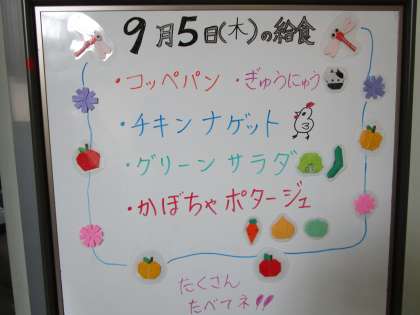 9月5日(木)の給食
・コッペパン ・ぎゅうにゅう
・チキンナゲット
・グリーンサラダ
・かぼちゃポタージュ
たくさん
たべてネ!!